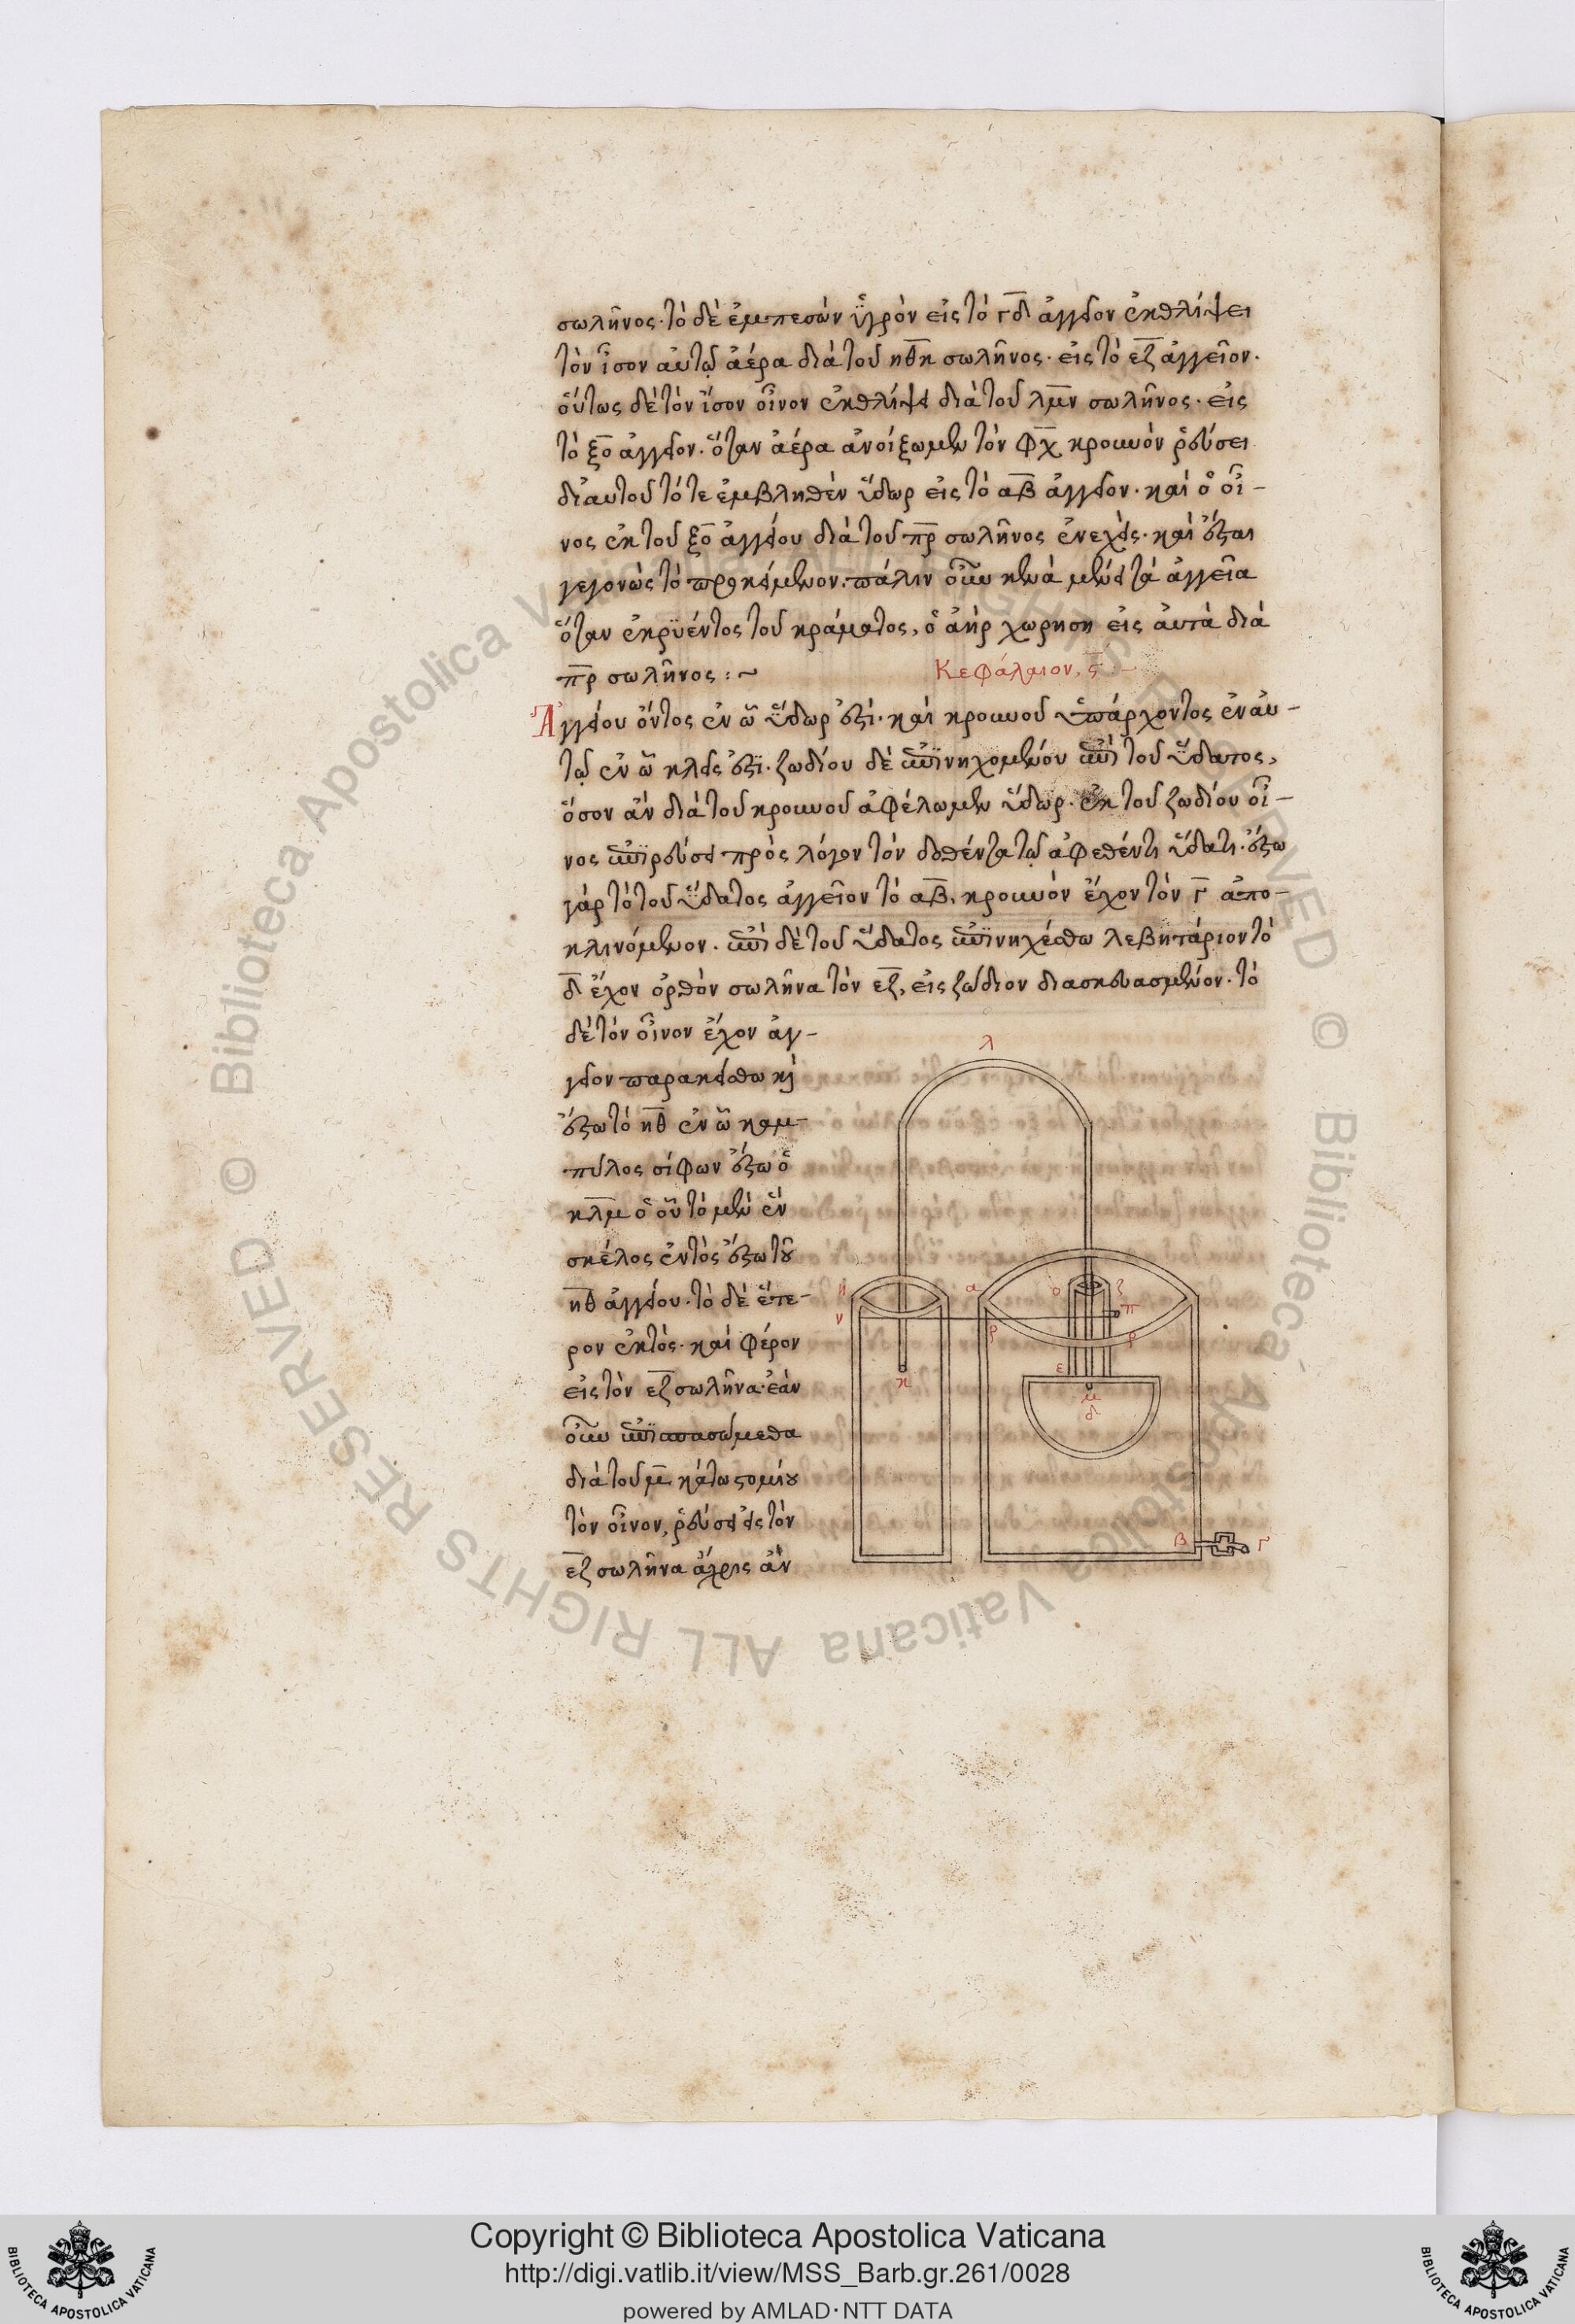 σωλῆνος· τὸ δὲ ἐμπεσὸν ὑγρὸν εἰς τὸ γδ ἀγγεῖον ἐκθλίψει
τὸν ἴσον αὐτῷ ἀέρα διὰ τοῦ ηθκ σωλῆνος· εἰς τὸ εζ ἀγγεῖον·
οὕτως δὲ τὸν ἴσον οἶνον ἐκθλίψει διὰ τοῦ λμν σωλῆνος· εἰς
τὸ ξο ἀγγεῖον· ὅταν ἀέρα ἀνοίξωμεν τὸν φχ κρουνὸν ῥεύσει
δι' αὐτοῦ τό τε ἐμβληθὲν ὕδωρ εἰς τὸ αβ ἀγγεῖον· καὶ ὁ οἶ-
νος ἐκ τοῦ ξο ἀγγείου διὰ τοῦ πρ σωλῆνος ἐνεχθείς· καὶ ἔσται
γεγονὼς τὸ προκείμενον· πάλιν οὖν κενὰ μενεῖ τὰ ἀγγεῖα
ὅταν ἐκρυέντος τοῦ κράματος, ὁ ἀὴρ χωρήση εἰς αὐτὰ διὰ
πρ σωλῆνος :~
Κεφάλαιον, ς :~
Ἀγγείου ὄντος ἐν ᾧ ὕδωρ ἐστί· καὶ κρουνοῦ ὑπάρχοντος ἐν αὐ-
τῷ ἐν ᾧ κλείς ἐστι· ζωδίου δὲ ἐπινηχομένου ἐπὶ τοῦ ὕδατος,
ὅσον ἂν διὰ τοῦ κρουνοῦ ἀφέλωμεν ὕδωρ· ἐκ τοῦ ζωδίου οἶ-
νος ἐπιρεύσει πρὸς λόγον τὸν δοθέντα τῷ ἀφεθέντι ὕδατι· ἔστω
γὰρ τὸ τοῦ ὕδατος ἀγγεῖον τὸ αβ, κρουνὸν ἔχον τὸν γ ἀπο-
κλινόμενον· ἐπὶ δὲ τοῦ ὕδατος ἐπινηχέσθω λεβητάριον τὸ
δ ἔχον ὀρθὸν σωλῆνα τὸν εζ, εἰς ζώδιον διασκευασμένον· τὸ
δὲ τὸν οἶνον ἔχον ἀγ-
γεῖον παρακείσθω καὶ
ἔστω τὸ ηθ ἐν ᾧ καμ-
πύλος σίφων ἔστω ὁ
κλμ ὁ οὗ τὸ μὲν ἓν
σκέλος ἐντὸς ἔστω τοῦ
ηθ ἀγγείου· τὸ δὲ ἕτε-
ρον ἐκτός· καὶ φέρον
εἰς τὸν εζ σωλῆνα· ἐὰν
οὖν ἐπισπασώμεθα
διὰ τοῦ μ κάτω στομίου
τὸν οἶνον, ῥεύσει εἰς τὸν
εζ σωλῆνα ἄχρις ἂν
λ
η
α
ο
ζ
ν
π
ρ
ρ
ε
κ
μ
δ
β
γ
Copyright © Biblioteca Apostolica Vaticana
http://digi.vatlib.it/view/MSS_Barb.gr.261/0028
powered by AMLAD·NTT DATA
BIBLIOTECA APOSTOLICA VATICANA
BIBLIOTECA APOSTOLICA VATICANA
© Biblioteca Apostolica Vaticana ALL RIGHTS RESERVED
© Biblioteca Apostolica Vaticana ALL RIGHTS RESERVED